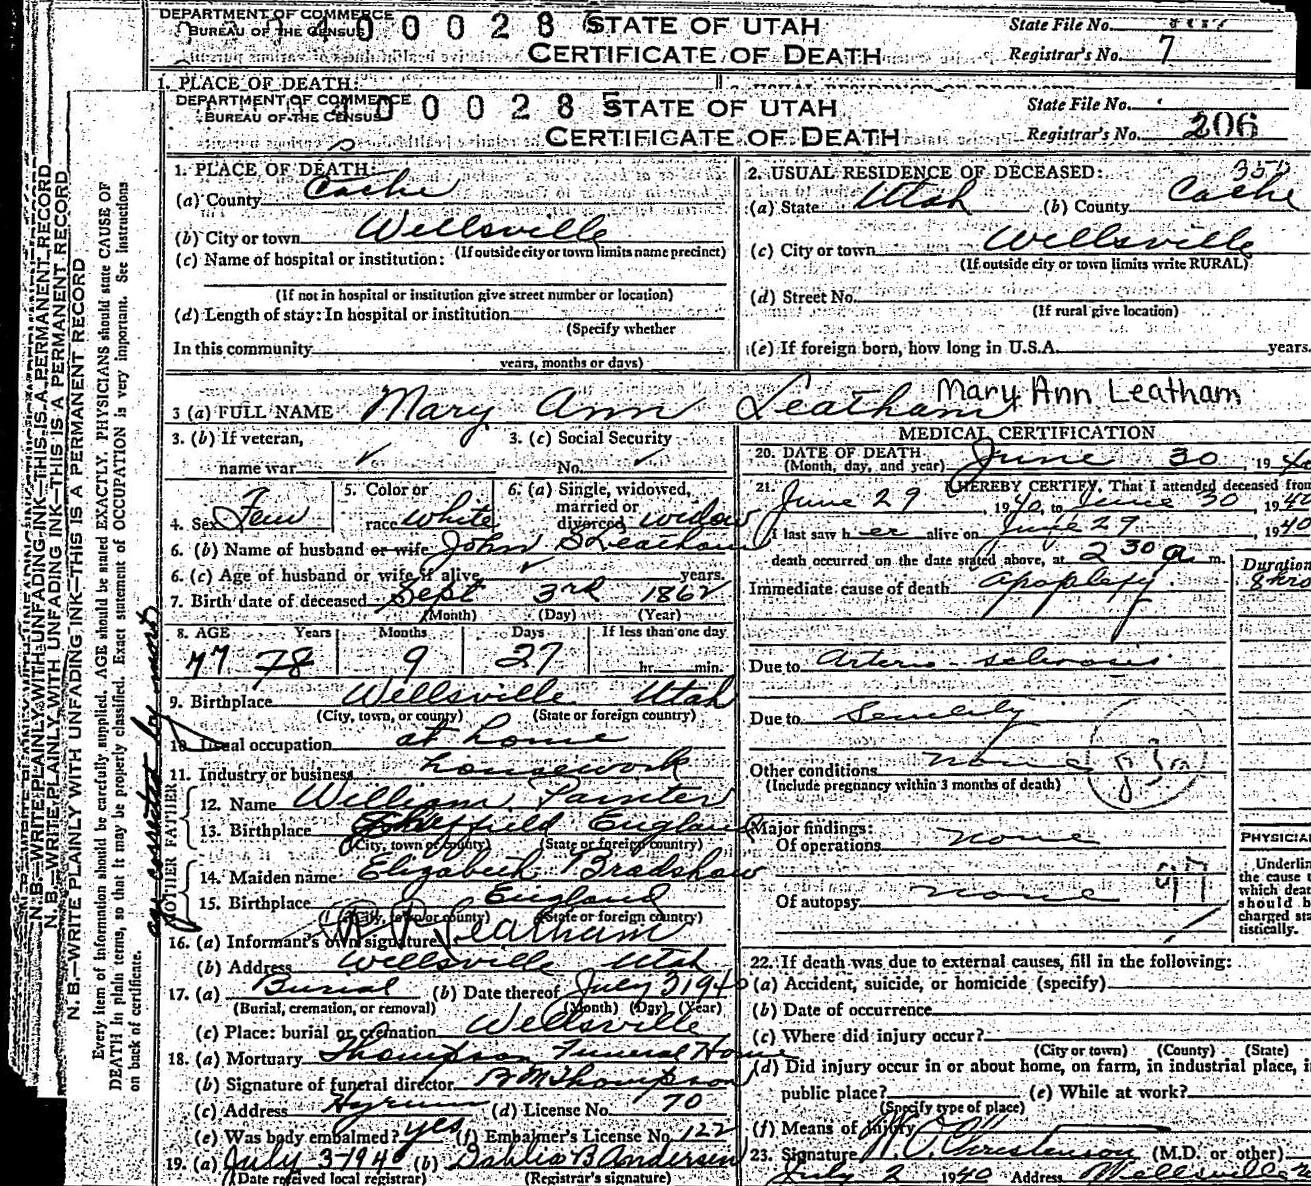 DEPARTMENT OF COMMERCE
BUREAU OF THE CENSUS
0 0 0 2 8
STATE OF UTAH
CERTIFICATE OF DEATH
State File No.
Registrar's No. 7
1. PLACE OF DEATH:
DEPARTMENT OF COMMERCE
BUREAU OF THE CENSUS
0 0 0 2 8 5
STATE OF UTAH
CERTIFICATE OF DEATH
State File No.
Registrar's No. 206
N. B.—WRITE PLAINLY WITH UNFADING INK—THIS IS A PERMANENT RECORD
N. B.—WRITE PLAINLY WITH UNFADING INK—THIS IS A PERMANENT RECORD
N. B.—WRITE PLAINLY WITH UNFADING INK—THIS IS A PERMANENT RECORD
Every item of information should be carefully supplied. AGE should be stated EXACTLY. PHYSICIANS should state CAUSE OF
DEATH in plain terms, so that it may be properly classified. Exact statement of OCCUPATION is very important. See instructions
on back of certificate.
age corrected by
1. PLACE OF DEATH:
(a) County Cache
(b) City or town Wellsville
(If outside city or town limits name precinct)
(c) Name of hospital or institution:
(If not in hospital or institution give street number or location)
(d) Length of stay: In hospital or institution
(Specify whether
In this community
years, months or days)
2. USUAL RESIDENCE OF DECEASED:
(a) State Utah (b) County Cache
(c) City or town Wellsville
(If outside city or town limits write RURAL)
(d) Street No.
(If rural give location)
(e) If foreign born, how long in U.S.A. years.
3 (a) FULL NAME Mary Ann Leatham
Mary Ann Leatham
3. (b) If veteran,
name war
3. (c) Social Security
No.
4. Sex Fem
5. Color or
race white
6. (a) Single, widowed,
married or
divorced widow
6. (b) Name of husband or wife John S Leatham
6. (c) Age of husband or wife if alive years.
7. Birth date of deceased Sept 3rd 1862
(Month) (Day) (Year)
8. AGE Years Months Days If less than one day
77 78 9 27 hr. min.
9. Birthplace Wellsville Utah
(City, town, or county) (State or foreign country)
10. Usual occupation at home
11. Industry or business housework
FATHER
12. Name William Painter
13. Birthplace Sheffield England
(City, town or county) (State or foreign country)
MOTHER
14. Maiden name Elizabeth Bradshaw
15. Birthplace England
(City, town or county) (State or foreign country)
16. (a) Informant's own signature Leatham
(b) Address Wellsville Utah
17. (a) Burial (b) Date thereof July 3 1940
(Burial, cremation, or removal) (Month) (Day) (Year)
(c) Place: burial or cremation Wellsville
18. (a) Mortuary Thompson Funeral Home
(b) Signature of funeral director B M Thompson
(c) Address Hyrum (d) License No. 70
(e) Was body embalmed? yes (f) Embalmer's License No. 122
19. (a) July 3-1940 (b) Dahlia B Andersen
(Date received local registrar) (Registrar's signature)
MEDICAL CERTIFICATION
20. DATE OF DEATH
(Month, day, and year) June 30, 1940
21. I HEREBY CERTIFY, That I attended deceased from
June 29, 1940, to June 30, 1940
I last saw her alive on June 29, 1940
death occurred on the date stated above, at 2 30 a m.
Duration
Immediate cause of death apoplexy 8 hrs
Due to Arterio-sclerosis
Due to Senility
Other conditions none
(Include pregnancy within 3 months of death)
Major findings:
Of operations none
Of autopsy none
PHYSICIA
Underlin
the cause t
which deat
should b
charged sta
tistically.
22. If death was due to external causes, fill in the following:
(a) Accident, suicide, or homicide (specify)
(b) Date of occurrence
(c) Where did injury occur?
(City or town) (County) (State)
(d) Did injury occur in or about home, on farm, in industrial place, i
public place? (e) While at work?
(Specify type of place)
(f) Means of injury
23. Signature Christenson (M.D. or other)
July 2 1940 Address Wellsville